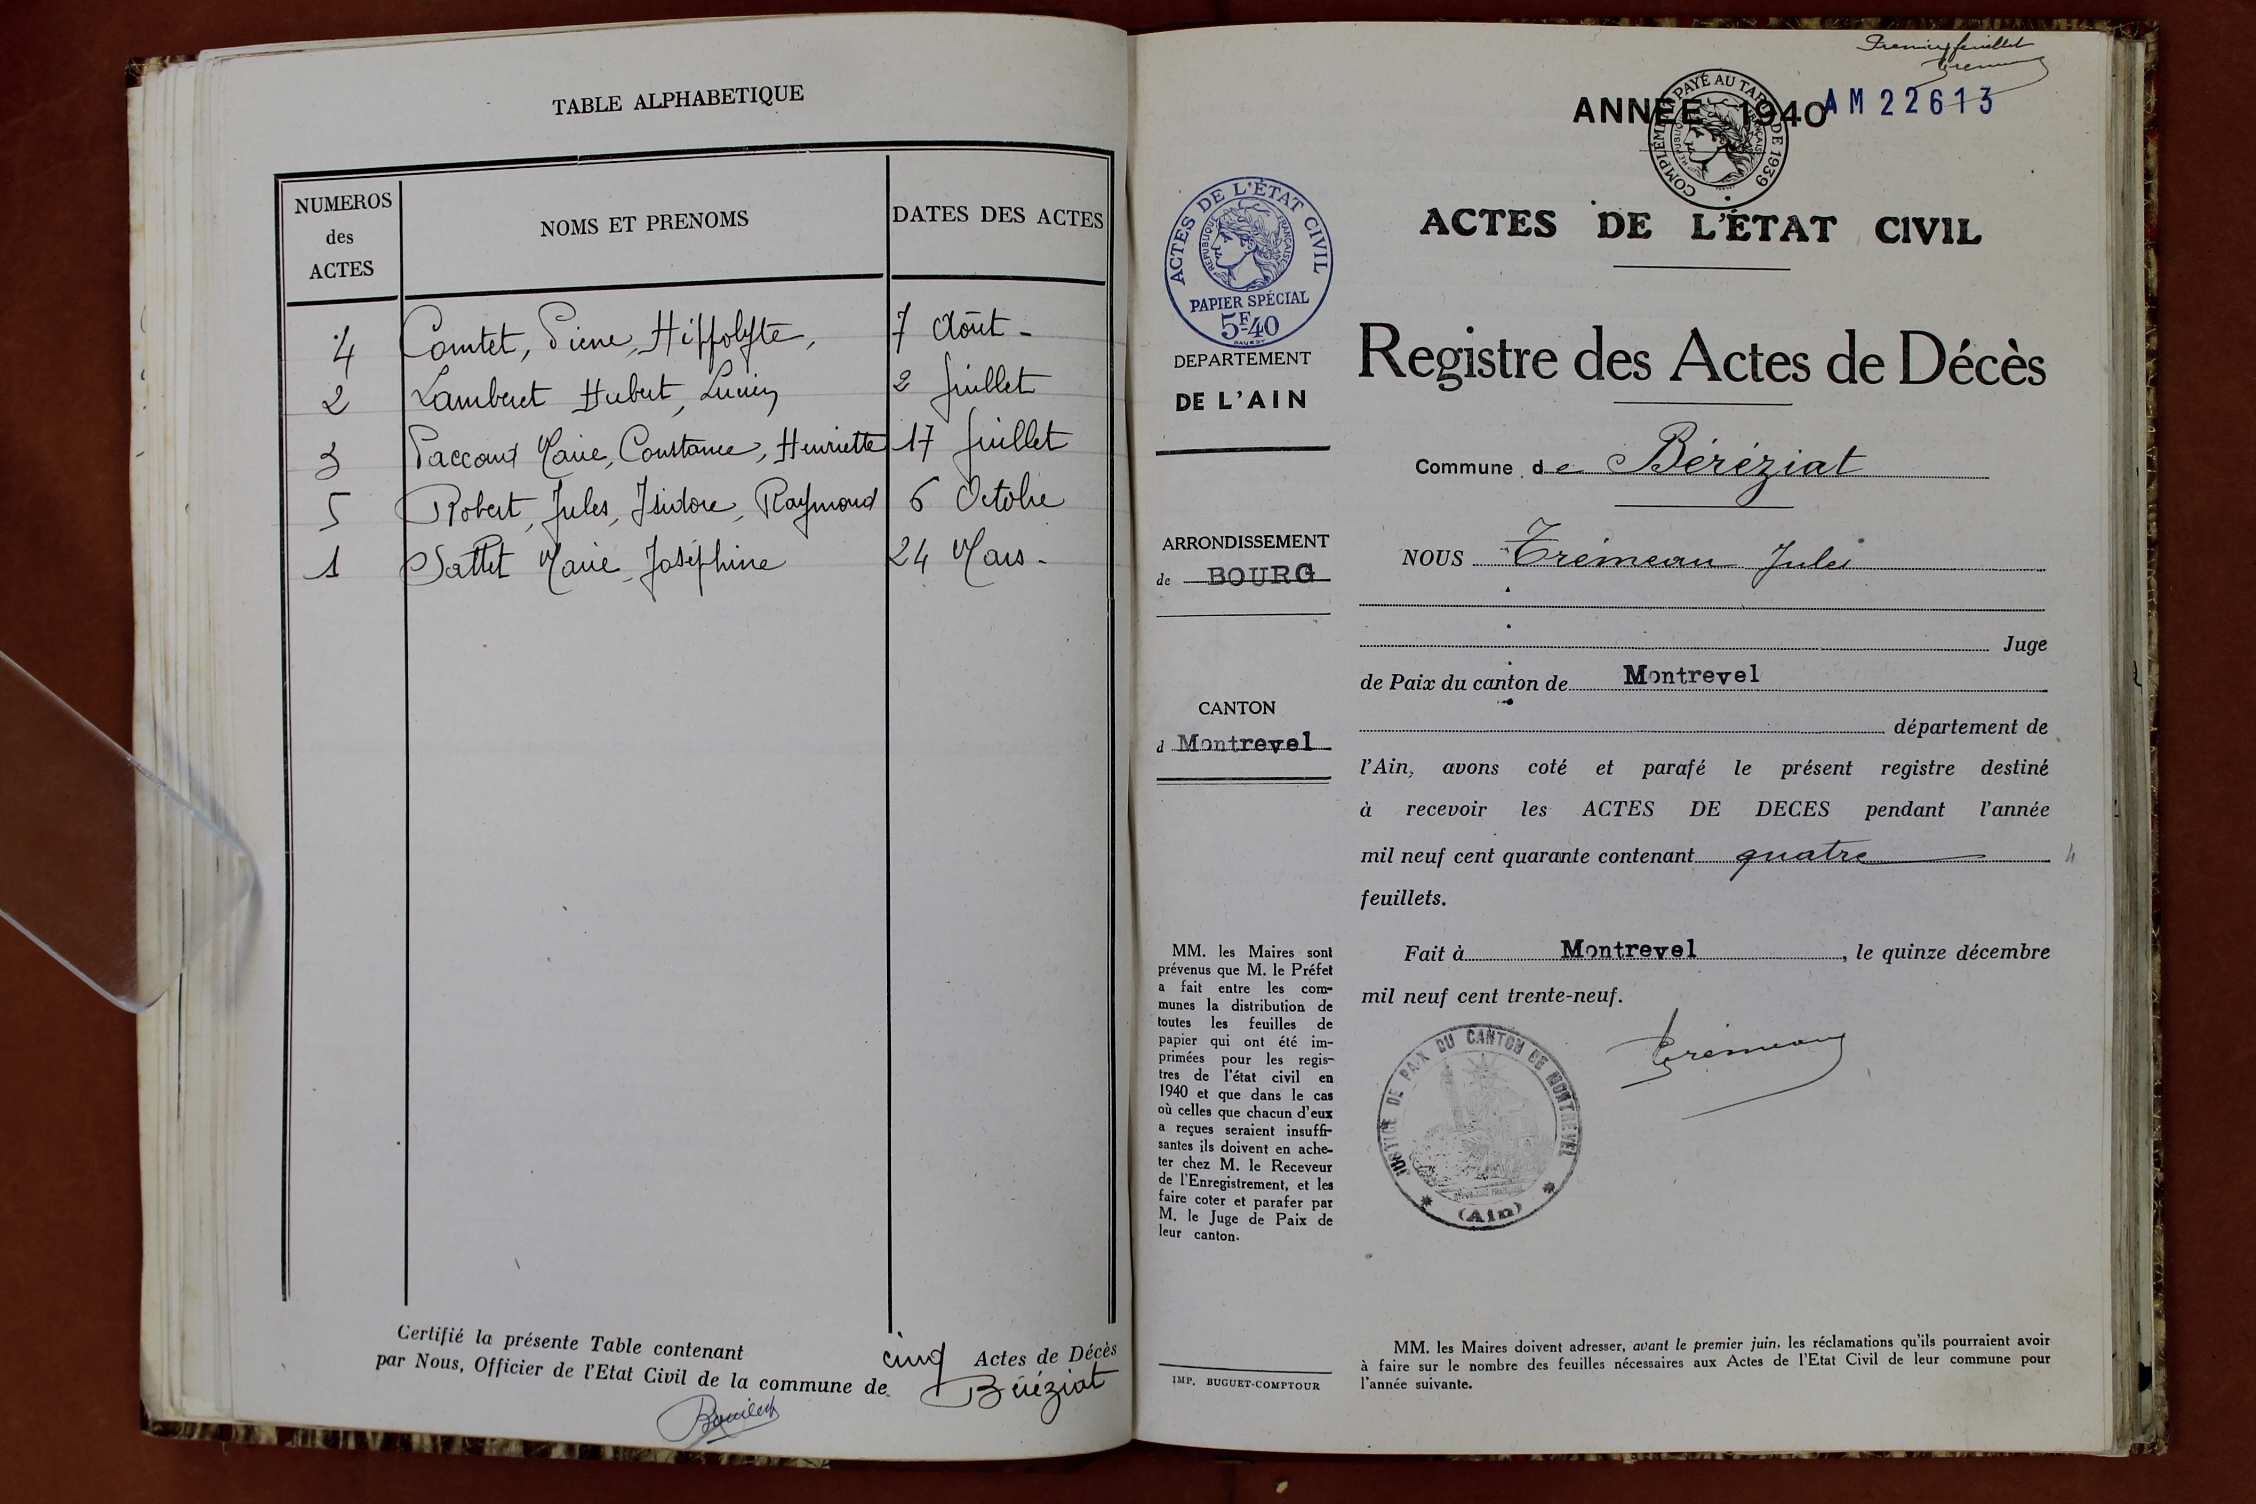 TABLE ALPHABETIQUE
NUMEROS des ACTES
NOMS ET PRENOMS
DATES DES ACTES
4 Comtet, Pierre, Hippolyte, 7 Août -
2 Lamberet Hubert, Lucien 2 Juillet
3 Paccoud Marie, Constance, Henriette 17 Juillet
5 Robert, Jules, Isidore, Raymond 6 Octobre
1 Sattet Marie Joséphine 24 Mars -
Certifié la présente Table contenant cinq Actes de Décès
par Nous, Officier de l'Etat Civil de la commune de Béréziat
Premier feuillet
Trémeau
ANNEE 1940
AM22613
COMPLÉMENT PAYÉ AU TARIF DE 1939
RÉPUBLIQUE FRANÇAISE
ACTES DE L'ÉTAT CIVIL
RÉPUBLIQUE FRANÇAISE
PAPIER SPÉCIAL
5F40
DEPARTEMENT
DE L'AIN
ARRONDISSEMENT
de BOURG
CANTON
d Montrevel
MM. les Maires sont
prévenus que M. le Préfet
a fait entre les com-
munes la distribution de
toutes les feuilles de
papier qui ont été im-
primées pour les regis-
tres de l'état civil en
1940 et que dans le cas
où celles que chacun d'eux
a reçues seraient insuffi-
santes ils doivent en ache-
ter chez M. le Receveur
de l'Enregistrement, et les
faire coter et parafer par
M. le Juge de Paix de
leur canton.
IMP. BUGUET-COMPTOUR
ACTES DE L'ÉTAT CIVIL
Registre des Actes de Décès
Commune de Béréziat
NOUS Trémeau Jules
Juge
de Paix du canton de Montrevel
département de
l'Ain, avons coté et parafé le présent registre destiné
à recevoir les ACTES DE DECES pendant l'année
mil neuf cent quarante contenant quatre 4
feuillets.
Fait à Montrevel, le quinze décembre
mil neuf cent trente-neuf.
Trémeau
JUSTICE DE PAIX DU CANTON DE MONTREVEL
(Ain)
MM. les Maires doivent adresser, avant le premier juin, les réclamations qu'ils pourraient avoir
à faire sur le nombre des feuilles nécessaires aux Actes de l'Etat Civil de leur commune pour
l'année suivante.